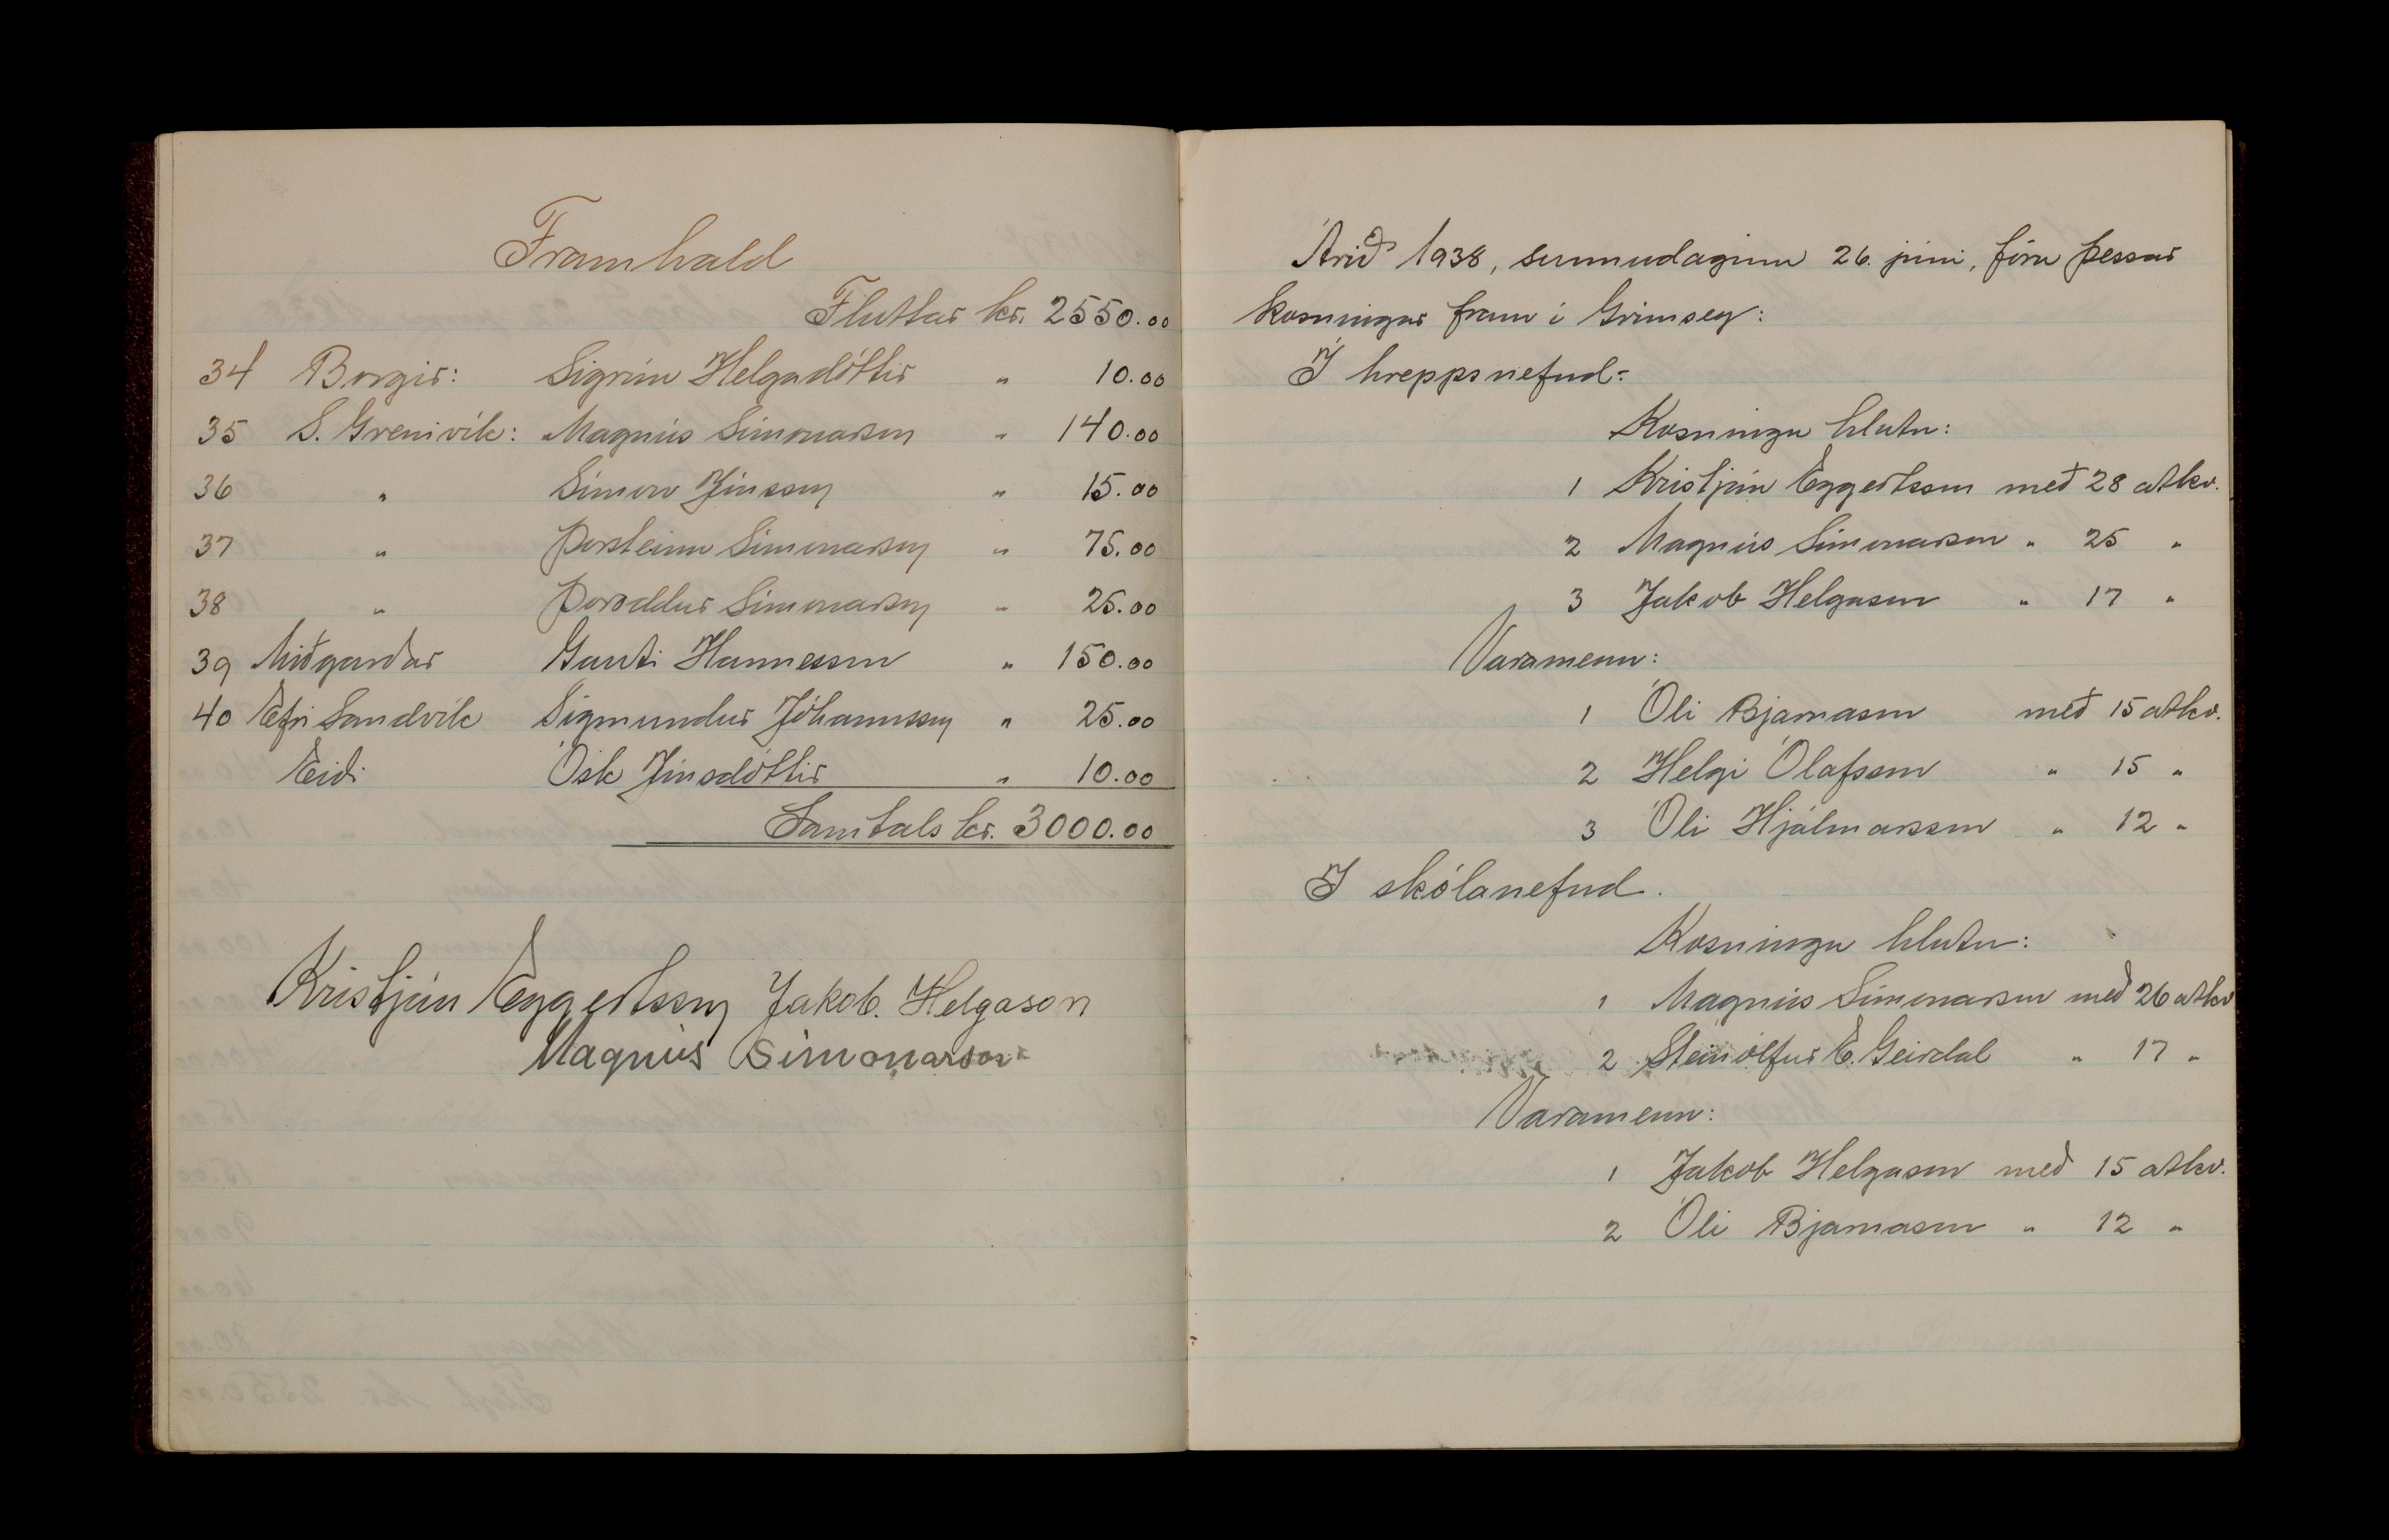 Framhald
Fluttar kr. 2550.00
34 Borgir: Sigrún Helgadóttir " 10.00
35 S. Grenivík: Magnús Símonarson " 140.00
36 " Símon Jónsson " 15.00
37 " Þorsteinn Símonarson " 75.00
38 " Þoroddur Símonarson " 25.00
39 Miðgarðar Gauti Hannesson " 150.00
40 Efri Sandvík Sigmundur Jóhannsson " 25.00
Eiði Ósk Jónsdóttir " 10.00
Samtals kr. 3000.00
Kristján Eggertsson Jakob. Helgason
Magnús Símonarson
Árið 1938, sunnudaginn 26. júní, fóru þessar
kosningar fram í Grímsey:
Í hreppsnefnd:
Kosningu hlutu:
1 Kristján Eggertsson með 28 atkv.
2 Magnús Símonarson " 25 "
3 Jakob Helgason " 17 "
Varamenn:
1 Óli Bjarnason með 15 atkv.
2 Helgi Ólafsson " 15 "
3 Óli Hjálmarsson " 12 "
Í skólanefnd.
Kosningu hlutu:
1 Magnús Símonarson með 26 atkv
2 Steinólfur E. Geirdal " 17 "
Varamenn:
1 Jakob Helgason með 15 atkv.
2 Óli Bjarnason " 12 "